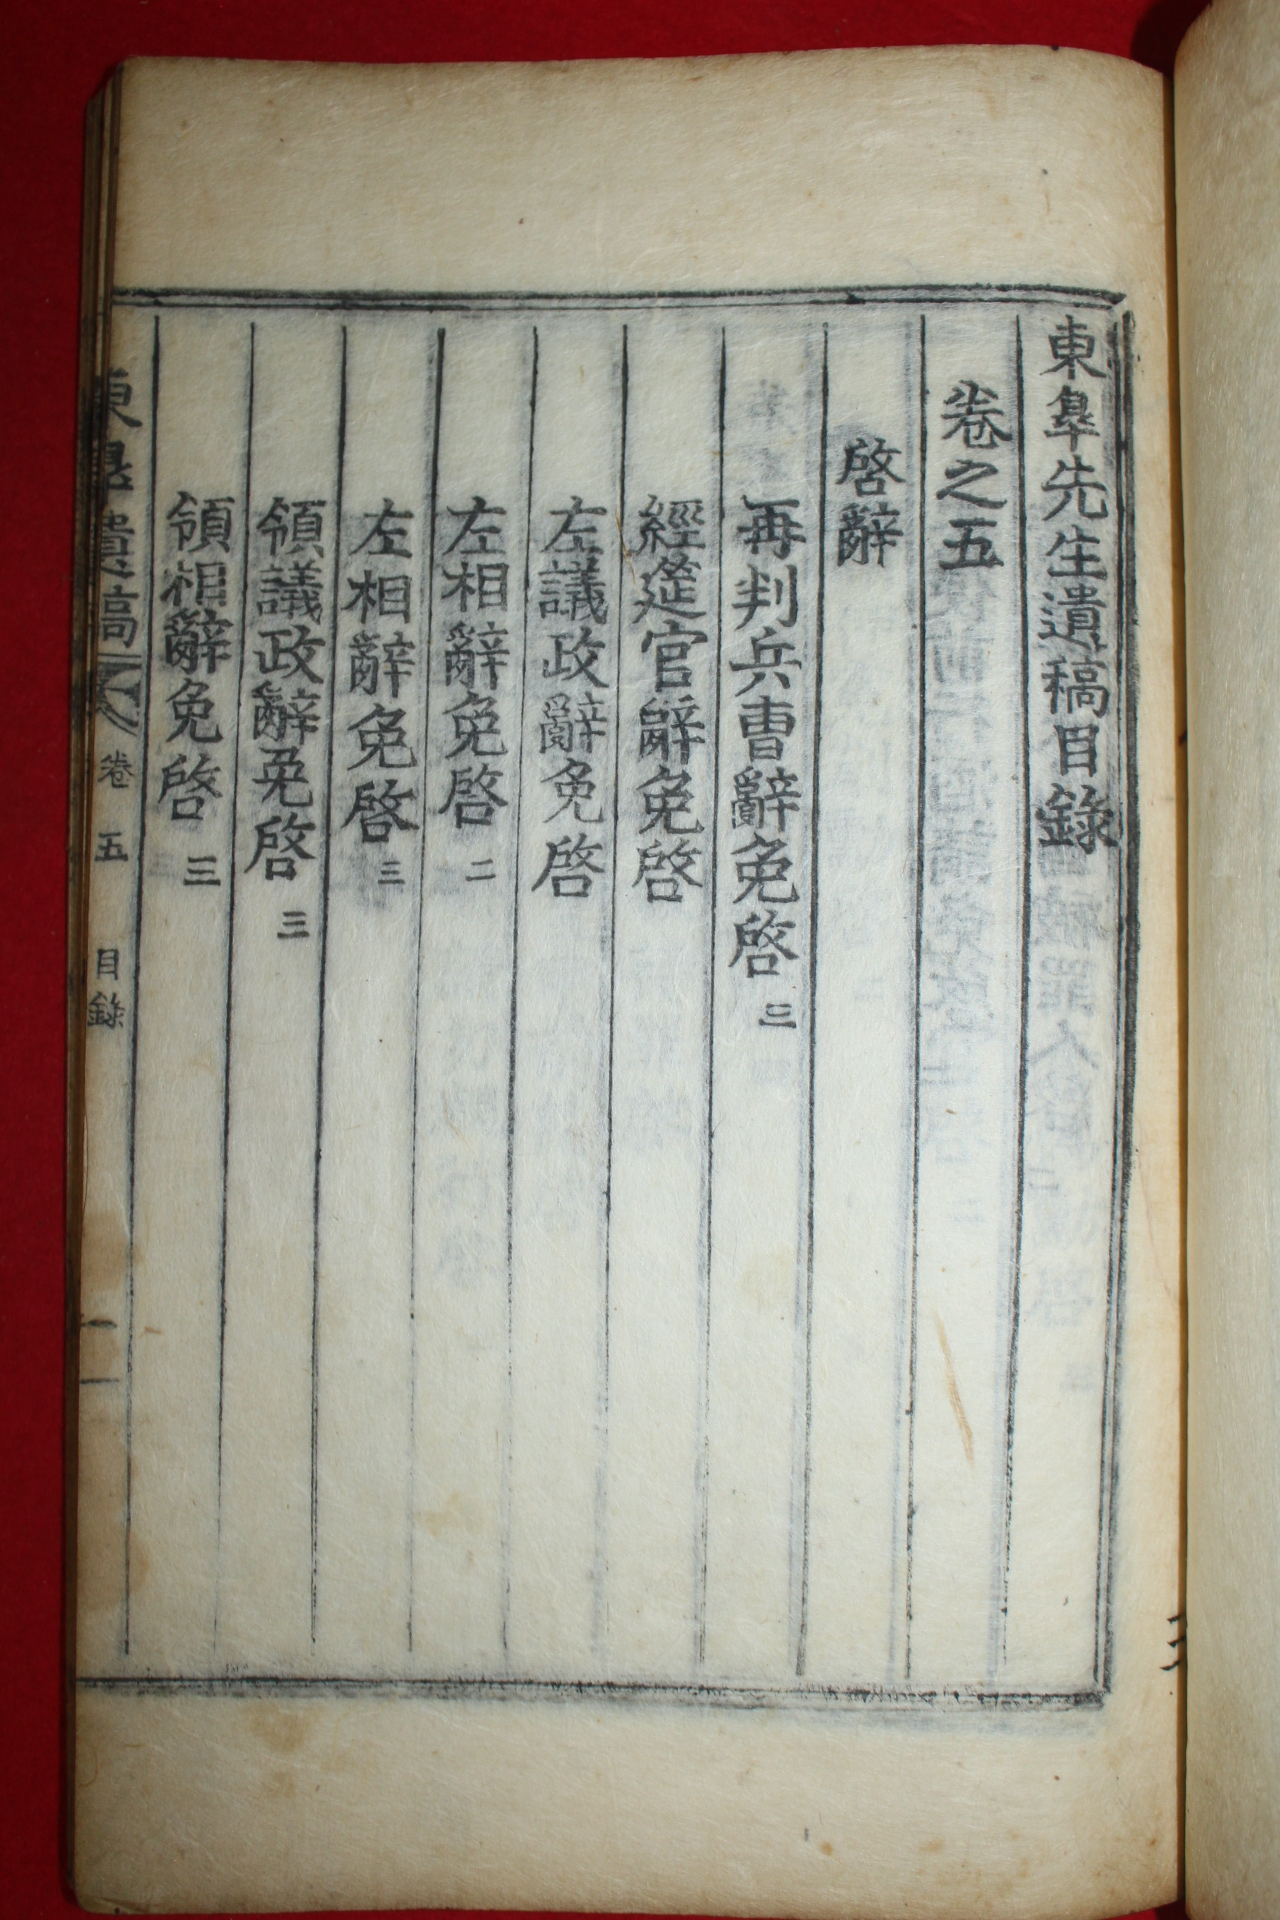 東皐先生遺稿目錄
卷之五
啓辭
再判兵曹辭免啓 三
經筵官辭免啓
左議政辭免啓
左相辭免啓 二
左相辭免啓 三
領議政辭免啓 三
領相辭免啓 三
東皐遺稿 卷五 目錄 一